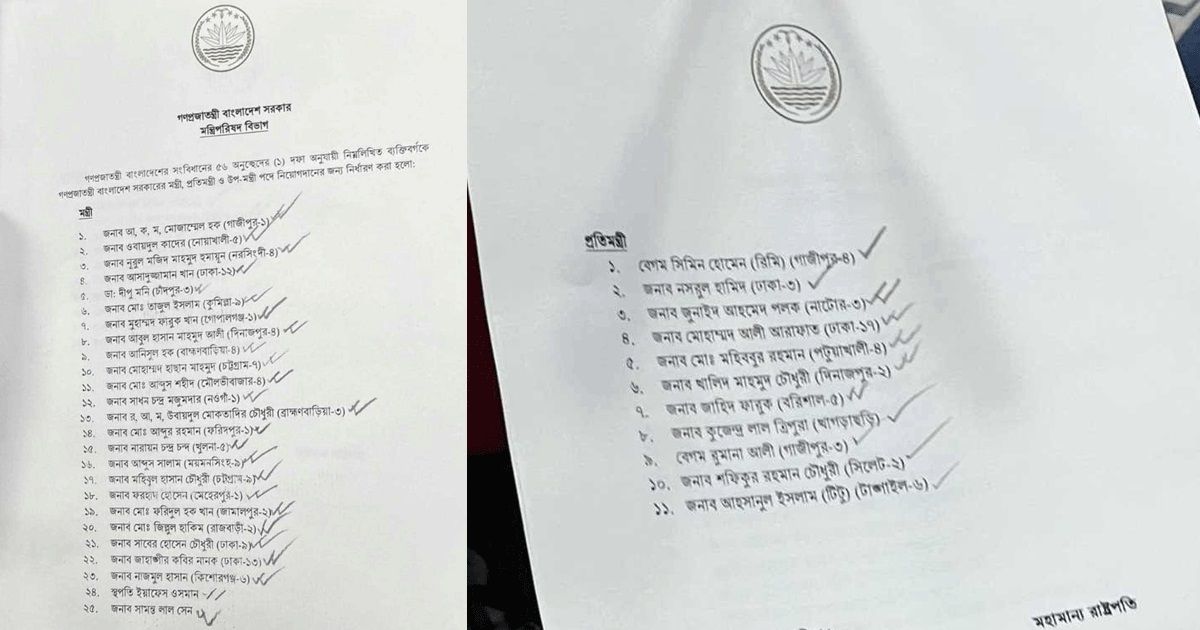 গণপ্রজাতন্ত্রী বাংলাদেশ সরকার
মন্ত্রিপরিষদ বিভাগ
গণপ্রজাতন্ত্রী বাংলাদেশের সংবিধানের ৫৬ অনুচ্ছেদের (১) দফা অনুযায়ী নিম্নলিখিত ব্যক্তিবর্গকে
গণপ্রজাতন্ত্রী বাংলাদেশ সরকারের মন্ত্রী, প্রতিমন্ত্রী ও উপ-মন্ত্রী পদে নিয়োগদানের জন্য নির্ধারণ করা হলো:
মন্ত্রী
১. জনাব আ, ক, ম, মোজাম্মেল হক (গাজীপুর-১)
২. জনাব ওবায়দুল কাদের (নোয়াখালী-৫)
৩. জনাব নূরুল মজিদ মাহমুদ হুমায়ূন (নরসিংদী-৪)
৪. জনাব আসাদুজ্জামান খান (ঢাকা-১২)
৫. ডা: দীপু মনি (চাঁদপুর-৩)
৬. জনাব মোঃ তাজুল ইসলাম (কুমিল্লা-৯)
৭. জনাব মুহাম্মদ ফারুক খান (গোপালগঞ্জ-১)
৮. জনাব আবুল হাসান মাহমুদ আলী (দিনাজপুর-৪)
৯. জনাব আনিসুল হক (ব্রাহ্মণবাড়িয়া-৪)
১০. জনাব মোহাম্মদ হাছান মাহমুদ (চট্টগ্রাম-৭)
১১. জনাব মোঃ আব্দুস শহীদ (মৌলভীবাজার-৪)
১২. জনাব সাধন চন্দ্র মজুমদার (নওগাঁ-১)
১৩. জনাব র, আ, ম, উবায়দুল মোকতাদির চৌধুরী (ব্রাহ্মণবাড়িয়া-৩)
১৪. জনাব মোঃ আব্দুর রহমান (ফরিদপুর-১)
১৫. জনাব নারায়ন চন্দ্র চন্দ (খুলনা-৫)
১৬. জনাব আব্দুস সালাম (ময়মনসিংহ-৯)
১৭. জনাব মহিবুল হাসান চৌধুরী (চট্টগ্রাম-৯)
১৮. জনাব ফরহাদ হোসেন (মেহেরপুর-১)
১৯. জনাব মোঃ ফরিদুল হক খান (জামালপুর-২)
২০. জনাব মোঃ জিল্লুল হাকিম (রাজবাড়ী-২)
২১. জনাব সাবের হোসেন চৌধুরী (ঢাকা-৯)
২২. জনাব জাহাঙ্গীর কবির নানক (ঢাকা-১৩)
২৩. জনাব নাজমুল হাসান (কিশোরগঞ্জ-৬)
২৪. স্থপতি ইয়াফেস ওসমান
২৫. জনাব সামন্ত লাল সেন
প্রতিমন্ত্রী
১. বেগম সিমিন হোমেন (রিমি) (গাজীপুর-৪)
২. জনাব নসরুল হামিদ (ঢাকা-৩)
৩. জনাব জুনাইদ আহমেদ পলক (নাটোর-৩)
৪. জনাব মোহাম্মদ আলী আরাফাত (ঢাকা-১৭)
৫. জনাব মোঃ মহিববুর রহমান (পটুয়াখালী-৪)
৬. জনাব খালিদ মাহমুদ চৌধুরী (দিনাজপুর-২)
৭. জনাব জাহিদ ফারুক (বরিশাল-৫)
৮. জনাব কুজেন্দ্র লাল ত্রিপুরা (খাগড়াছড়ি)
৯. বেগম রুমানা আলী (গাজীপুর-৩)
১০. জনাব শফিকুর রহমান চৌধুরী (সিলেট-২)
১১. জনাব আহসানুল ইসলাম (টিটু) (টাঙ্গাইল-৬)
মহামান্য রাষ্ট্রপতি